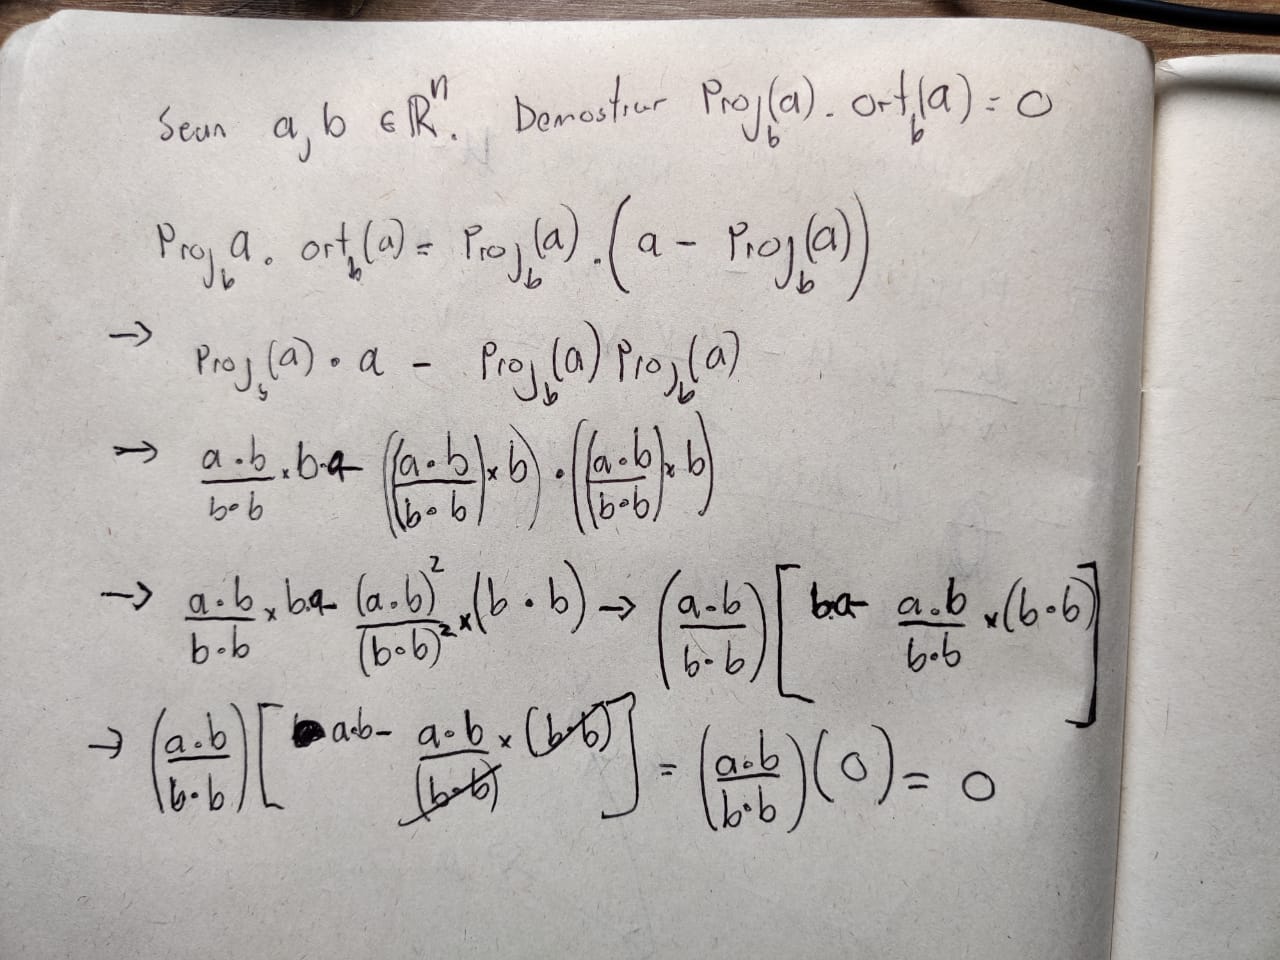 Sean a, b ∈ ℝⁿ. Demostrar Proj_b(a) · ort_b(a) = 0
Proj_b a · ort_b(a) = Proj_b(a) · (a - Proj_b(a))
→ Proj_b(a) · a - Proj_b(a) Proj_b(a)
→ (a·b)/(b·b) × b·a - (((a·b)/(b·b)) × b) · (((a·b)/(b·b)) × b)
→ (a·b)/(b·b) × b·a - (a·b)²/(b·b)² × (b·b) → ((a·b)/(b·b)) [b·a - (a·b)/(b·b) × (b·b)]
→ ((a·b)/(b·b)) [a·b - (a·b)/(b·b) × (b·b)] = ((a·b)/(b·b)) (0) = 0